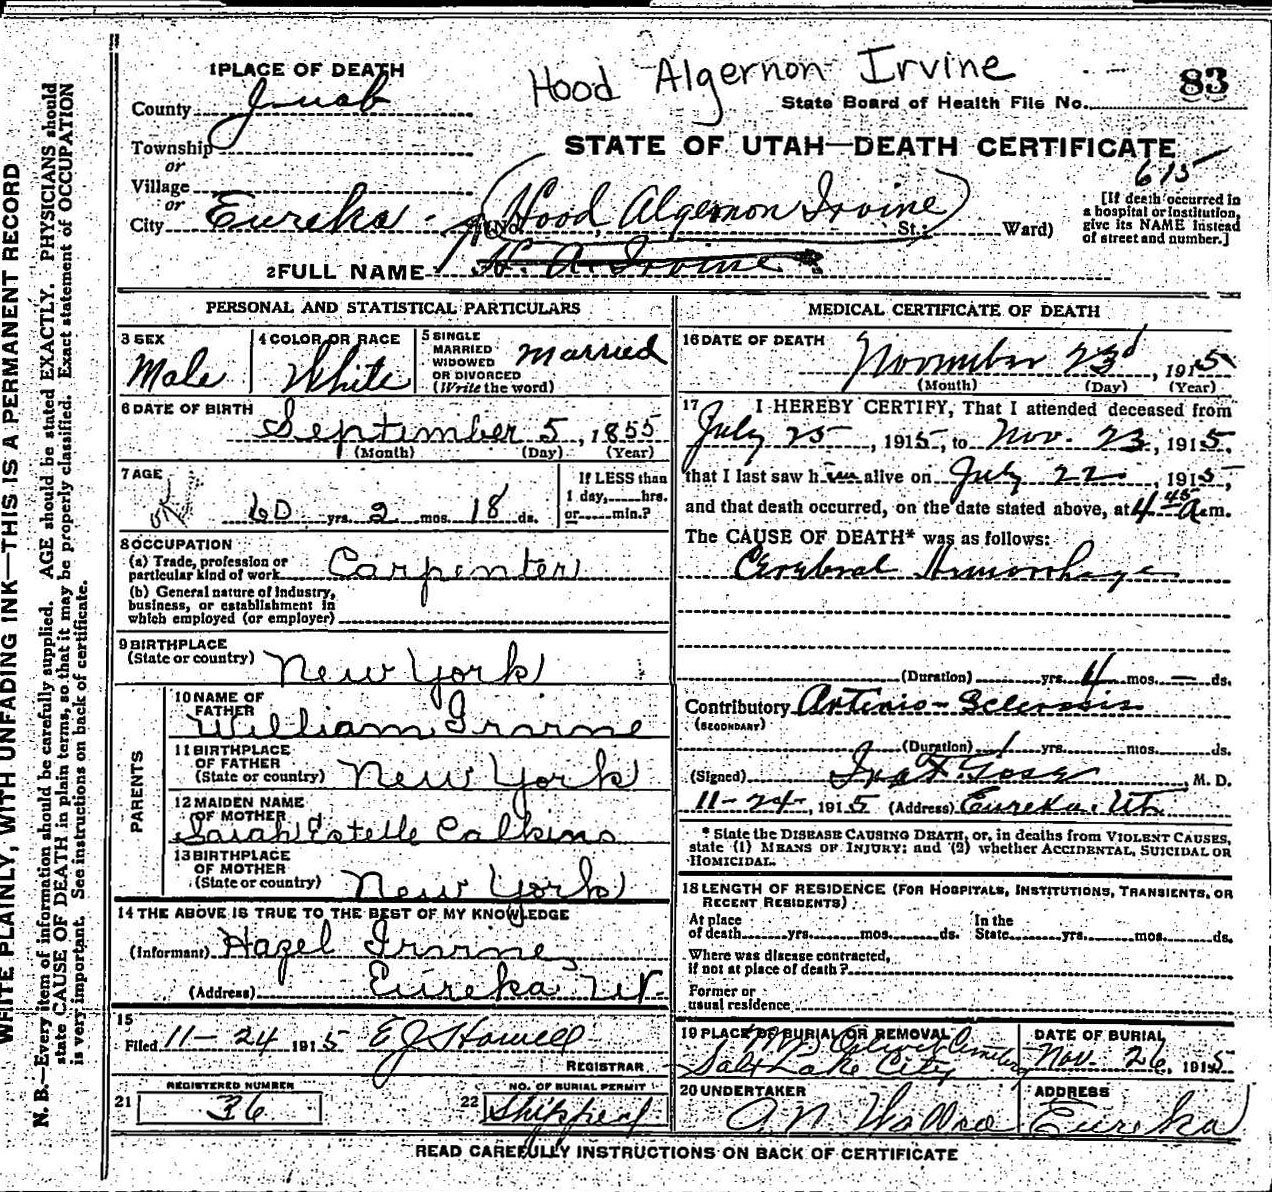 Hood Algernon Irvine
83
State Board of Health File No.
STATE OF UTAH—DEATH CERTIFICATE
615
1 PLACE OF DEATH
County Juab
Township
or
Village
or
City Eureka (No. (Hood, Algernon Irvine) St.; Ward)
[If death occurred in
a hospital or institution,
give its NAME instead
of street and number.]
2 FULL NAME H. A. Irvine
PERSONAL AND STATISTICAL PARTICULARS
3 SEX
Male
4 COLOR OR RACE
White
5 SINGLE
MARRIED
WIDOWED
OR DIVORCED
(Write the word)
Married
6 DATE OF BIRTH
September 5, 1855
(Month) (Day) (Year)
7 AGE
60 yrs. 2 mos. 18 ds.
If LESS than
1 day, hrs.
or min.?
8 OCCUPATION
(a) Trade, profession or
particular kind of work Carpenter
(b) General nature of Industry,
business, or establishment in
which employed (or employer)
9 BIRTHPLACE
(State or country) New York
PARENTS
10 NAME OF
FATHER
William Irvine
11 BIRTHPLACE
OF FATHER
(State or country) New York
12 MAIDEN NAME
OF MOTHER
Sarah Estelle Calkins
13 BIRTHPLACE
OF MOTHER
(State or country) New York
14 THE ABOVE IS TRUE TO THE BEST OF MY KNOWLEDGE
(Informant) Hazel Irvine
(Address) Eureka Ut.
15
Filed 11-24 1915 E J Howell
REGISTRAR
REGISTERED NUMBER
21 36
NO. OF BURIAL PERMIT
22 Shipped
MEDICAL CERTIFICATE OF DEATH
16 DATE OF DEATH
November 23d, 1915
(Month) (Day) (Year)
17 I HEREBY CERTIFY, That I attended deceased from
July 25, 1915, to Nov. 23, 1915,
that I last saw him alive on July 22, 1915,
and that death occurred, on the date stated above, at 4 45 A.m.
The CAUSE OF DEATH* was as follows:
Cerebral Hemorrhage
(Duration) yrs. 4 mos. — ds.
Contributory Arterio-Sclerosis
(SECONDARY)
(Duration) 1 yrs. mos. ds.
(Signed) M. D.
11-24-, 1915 (Address) Eureka, Ut.
* State the DISEASE CAUSING DEATH, or, in deaths from VIOLENT CAUSES,
state (1) MEANS OF INJURY; and (2) whether ACCIDENTAL, SUICIDAL OR
HOMICIDAL.
18 LENGTH OF RESIDENCE (FOR HOSPITALS, INSTITUTIONS, TRANSIENTS, OR
RECENT RESIDENTS)
At place
of death yrs. mos. ds.
In the
State yrs. mos. ds.
Where was disease contracted,
if not at place of death?
Former or
usual residence
19 PLACE OF BURIAL OR REMOVAL
Mt. Olivet Cemetery
Salt Lake City
DATE OF BURIAL
Nov. 26, 1915
20 UNDERTAKER
ADDRESS
Eureka
READ CAREFULLY INSTRUCTIONS ON BACK OF CERTIFICATE
WRITE PLAINLY, WITH UNFADING INK—THIS IS A PERMANENT RECORD
N. B.—Every item of information should be carefully supplied. AGE should be stated EXACTLY. PHYSICIANS should
state CAUSE OF DEATH in plain terms, so that it may be properly classified. Exact statement of OCCUPATION
is very important. See instructions on back of certificate.